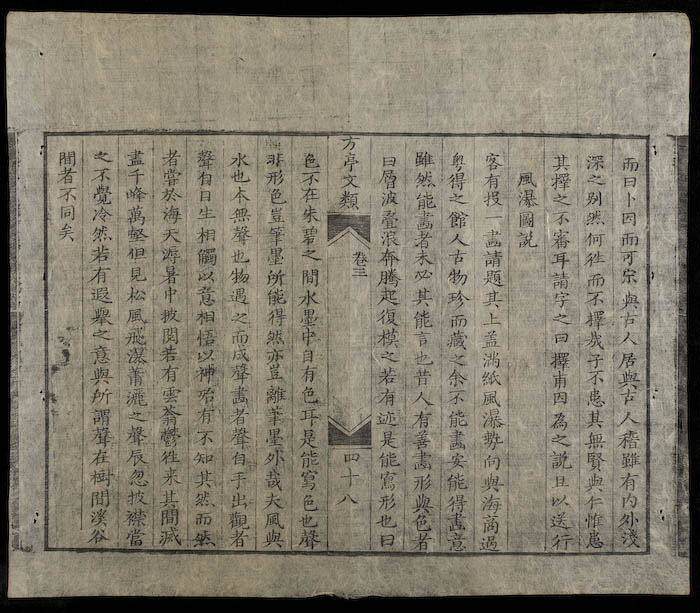 而曰卜因而可宗與古人居與古人稽雖有內外淺
深之別然何徃而不擇哉子不患其無賢與仁惟患
其擇之不審耳請字之曰擇甫因為之說且以送行
風瀑圖說
客有投一畵請題其上盖滿紙風瀑勢向與海商過
粵得之館人古物珍而藏之余不能畵安能得畵意
雖然能畵者未必其能言也昔人有善畵形與色者
曰層波疊浪奔騰起復模之若有迹是能寫形也曰
方亭文類
卷三
四十八
色不在朱碧之間水墨中自有色耳是能寫色也聲
非形色豈筆墨所能得然亦豈離筆墨外哉夫風與
水也本無聲也物遇之而成聲畵者聲自手出觀者
聲自目生相觸以意相悟以神殆有不知其然而然
者當於海天游暑中披閱若有雲蓊鬱徃來其間滅
盡千峰萬壑但見松風飛瀑蕭灑之聲辰忽披襟當
之不覺冷然若有遐舉之意與所謂聲在樹間溪谷
間者不同矣